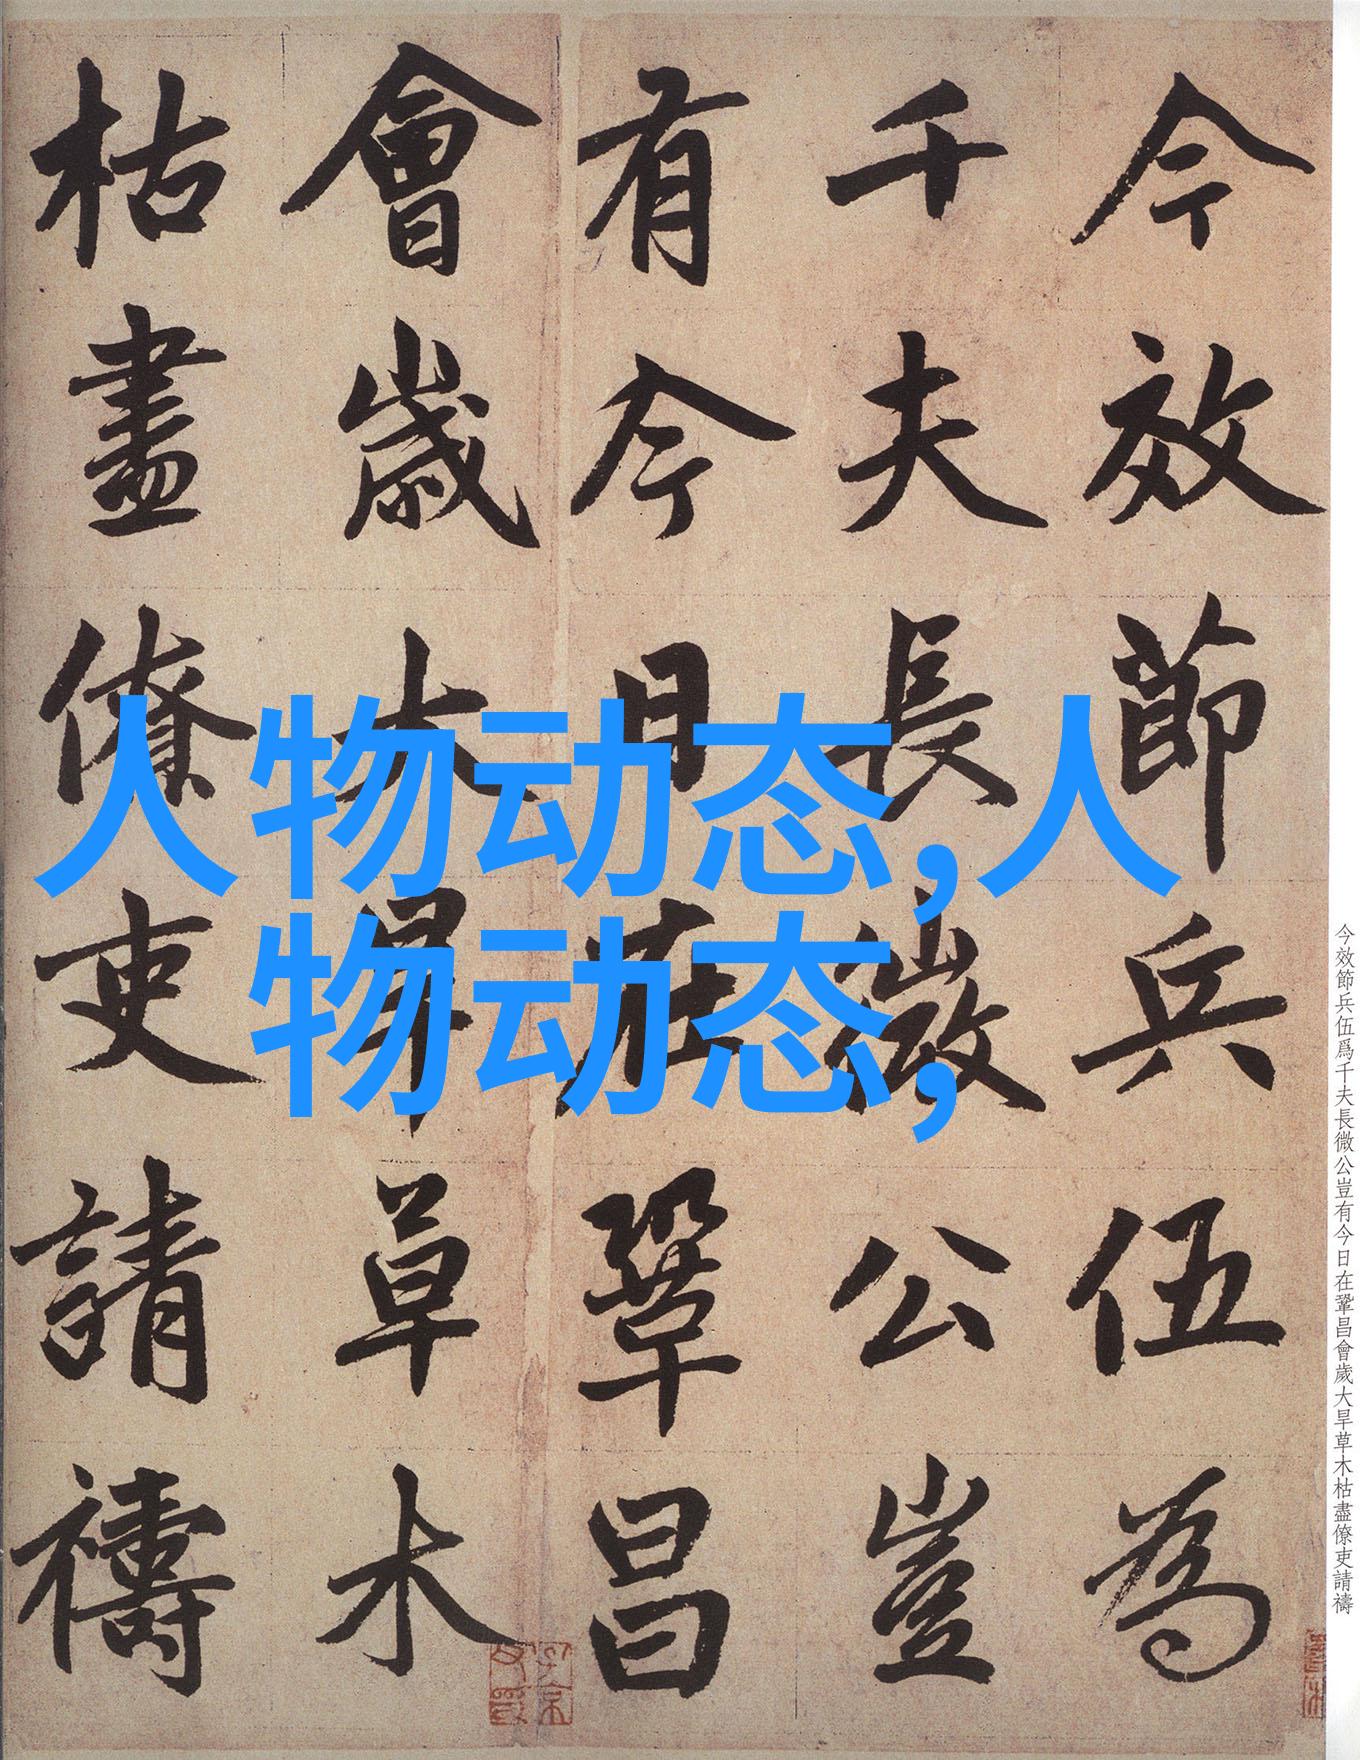 今效節兵伍為
千夫長微公豈
有今日在鞏昌
會歲大旱草木
枯盡僚吏請禱
人物动态,人
物动态,
今效節兵伍爲千夫長微公豈有今日在鞏昌會歲大旱草木枯盡僚吏請禱